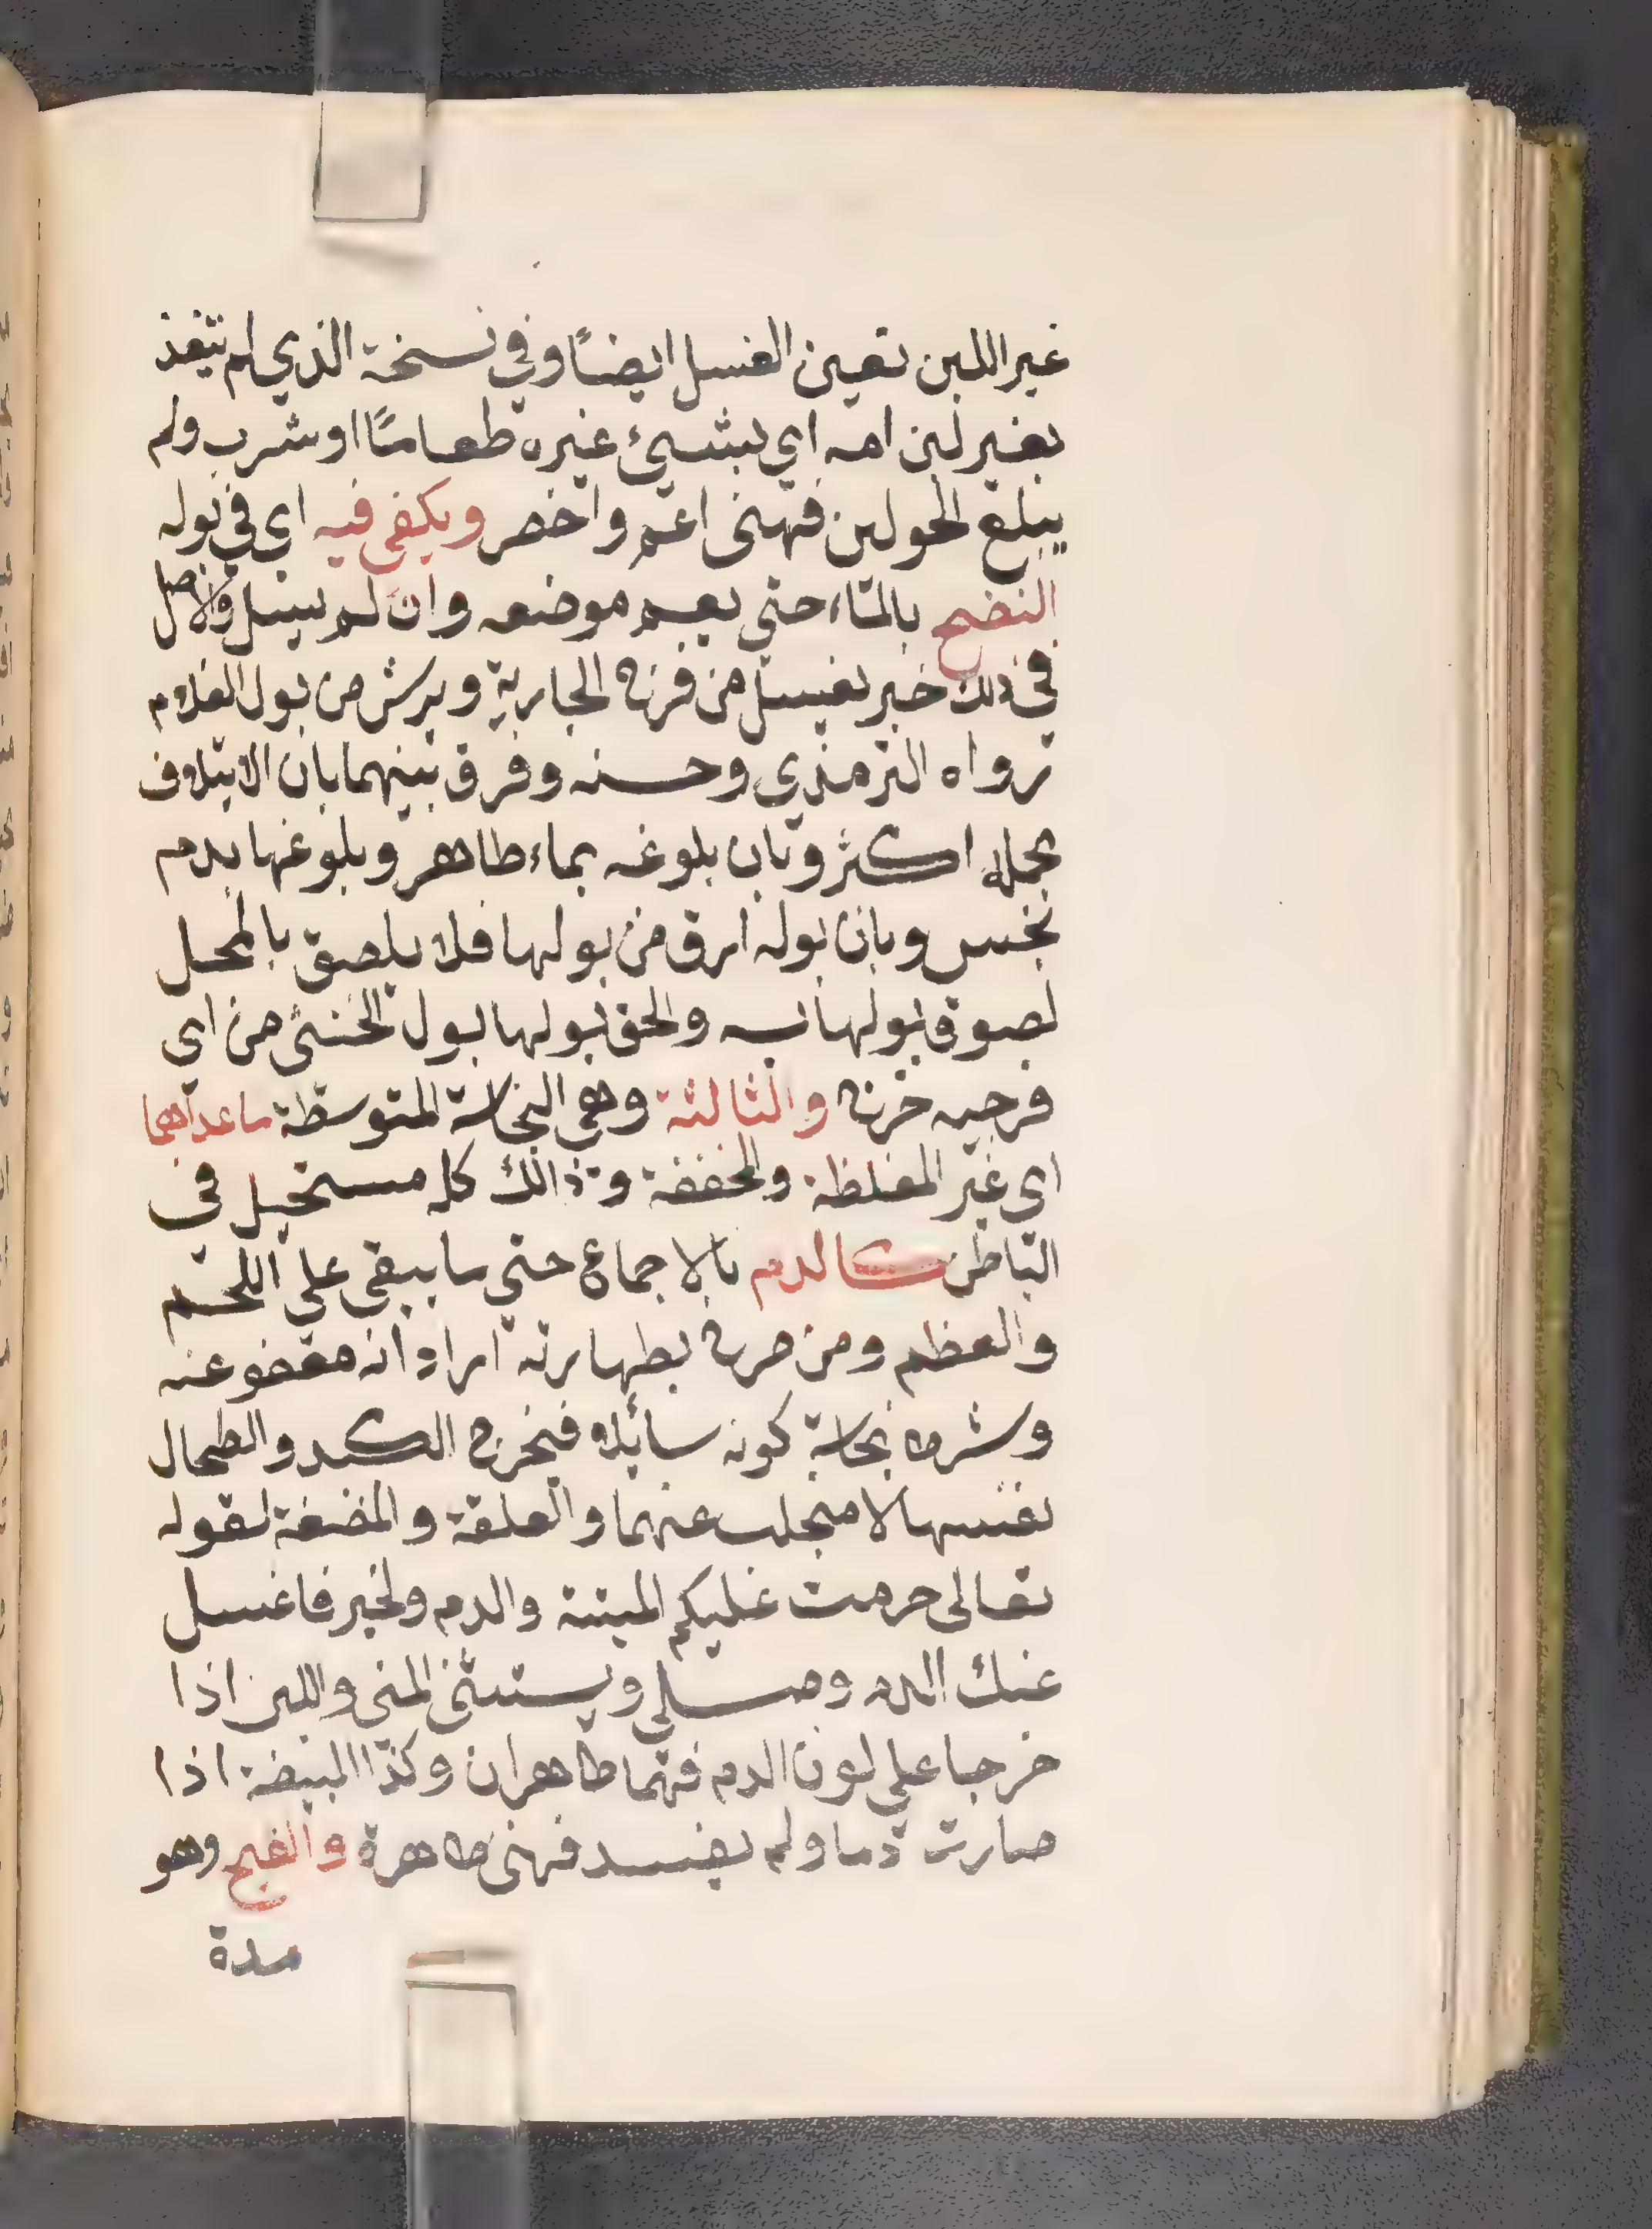 غير اللبن تعين الغسل ايضًا وفي نسخة الذي لم يتغذ
بغير لبن امه اي بشيئ غيره طعامًا او شرب ولم
يبلغ الحولين فهنى اعم واخصر ويكفى فيه اي في بوله
النضح بالماء حتي يعم موضعه وان لم يسل والاصل
في ذلك خبر يغسل من فرج الجارية ويرش من بول الغلام
رواه الترمذي وحسنه وفرق بينهما بان الايتلاف
بحمله اكثر وبان بلوغه بماء طاهر وبلوغها بدم
نجس وبان بوله ارق من بولها فلا يلصق بالمحل
لصوق بولها به والحق ببولها بول الخنثى من اي
فرجيه خرج والثالثة وهي النجاسة المتوسطة ماعداهما
اي غير المغلظة والمخففة وذالك كله مستحيل في
الباطن كالدم بالاجماع حتي ما يبقى علي اللحم
والعظم ومن صرح بطهارته اراد انه معفو عنه
وشرط نجاسة كونه سائلا فيخرج الكبد والطحال
نفسها لا منجلب عنهما والعلقة والمضغة لقوله
تعالى حرمت عليكم الميتة والدم ولخبر فاغسل
عنك الدم وصلي ويستثنى المنى واللبن اذا
خرجا علي لون الدم فهما طاهران وكذا البيضة اذا
صارت دما ولم يفسد فهنى طاهرة والقيح وهو
مدة